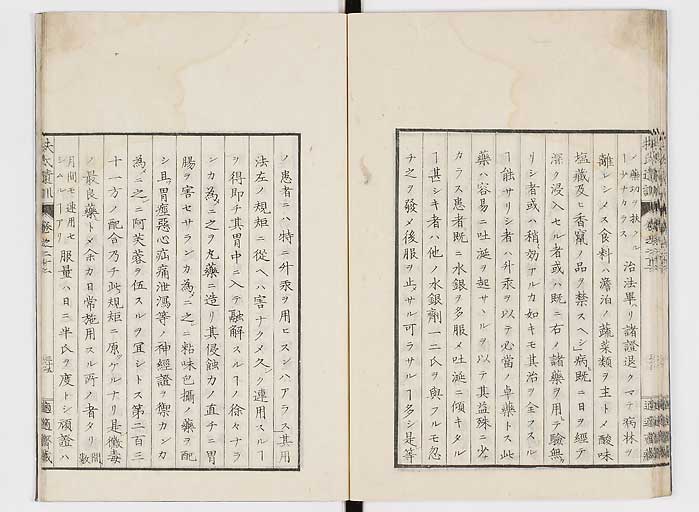 ノ奏功ヲ扶クル
ー少ナカラス 治法畢リ諸證退クマテ病牀ヲ
離レシメス食料ハ澹泊ノ蔬菜類ヲ主トメ酸味
塩藏及ヒ香竄ノ品ヲ禁スヘシ病既ニ日ヲ經テ
深ク浸入セル者或ハ既ニ右ノ諸藥ヲ用テ驗無
リシ者或ハ稍効アルカ如キモ其治ヲ全フスル
ー能サリシ者ハ外汞ヲ以テ必當ノ卓藥トス此
藥ハ容易ニ吐涎ヲ起サヽルヲ以テ其益殊ニ少
カラス患者既ニ水銀ヲ多服メ吐涎ニ傾キタル
ー甚シキ者ハ他ノ水銀劑一二氏ヲ與フルモ忽
チ之ヲ發メ後服ヲ止サル可ラサルー多シ是等
ノ患者ニハ特ニ外汞ヲ用ヒスンハアラス其用
法左ノ規矩ニ從ヘハ害ナクメ久ク連用スルー
ヲ得即チ其胃中ニ入テ融解スルーノ徐々ナラ
ンカ為ニ之ヲ丸藥ニ造リ其侵蝕力ノ直チニ胃
腸ヲ害セサランカ為ニ之ニ粘味包攝ノ藥ヲ配
シ且胃痙惡心疝痛泄瀉等ノ神經證ヲ禦カンカ
為ニ之ニ阿芙蓉ヲ伍スルヲ宜シトス第二百三
十一方ノ配合乃チ此規矩ニ原ケルナリ是黴毒
ノ最良藥トメ余カ日常施用スル所ノ者タリ 間數
月間モ連用セ
シムルーアリ 服量ハ日ニ半氏ヲ度トシ頑證ハ
扶氏遺訓 卷之二十二 適適齋藏